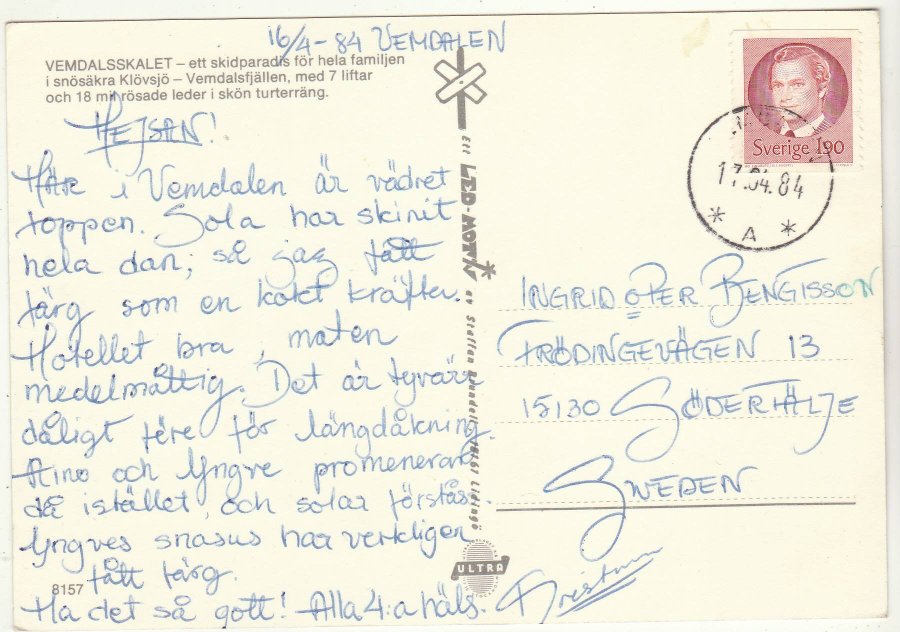 16/4-84 VEMDALEN
VEMDALSSKALET – ett skidparadis för hela familjen
i snösäkra Klövsjö – Vemdalsfjällen, med 7 liftar
och 18 mil rösade leder i skön turterräng.
HEJSAN!
Här i Vemdalen är vädret
toppen. Sola har skinit
hela dan, så jag fått
färg som en kokt kräfta.
Hotellet bra, maten
medelmåttig. Det är tyvärr
dåligt före för längdåkning.
Aino och Yngve promenerar
då istället, och solar förstås.
Yngves snasus har verkligen
fått färg.
Ha det så gott! Alla 4:a häls.
8157
ETT LED-MOTIV av Staffan Lidingö
ULTRA
Sverige 190
17.04.84
A
INGRID O PER BENGTSSON
FRÖDINGEVÄGEN 13
15130 SÖDERTÄLJE
SWEDEN